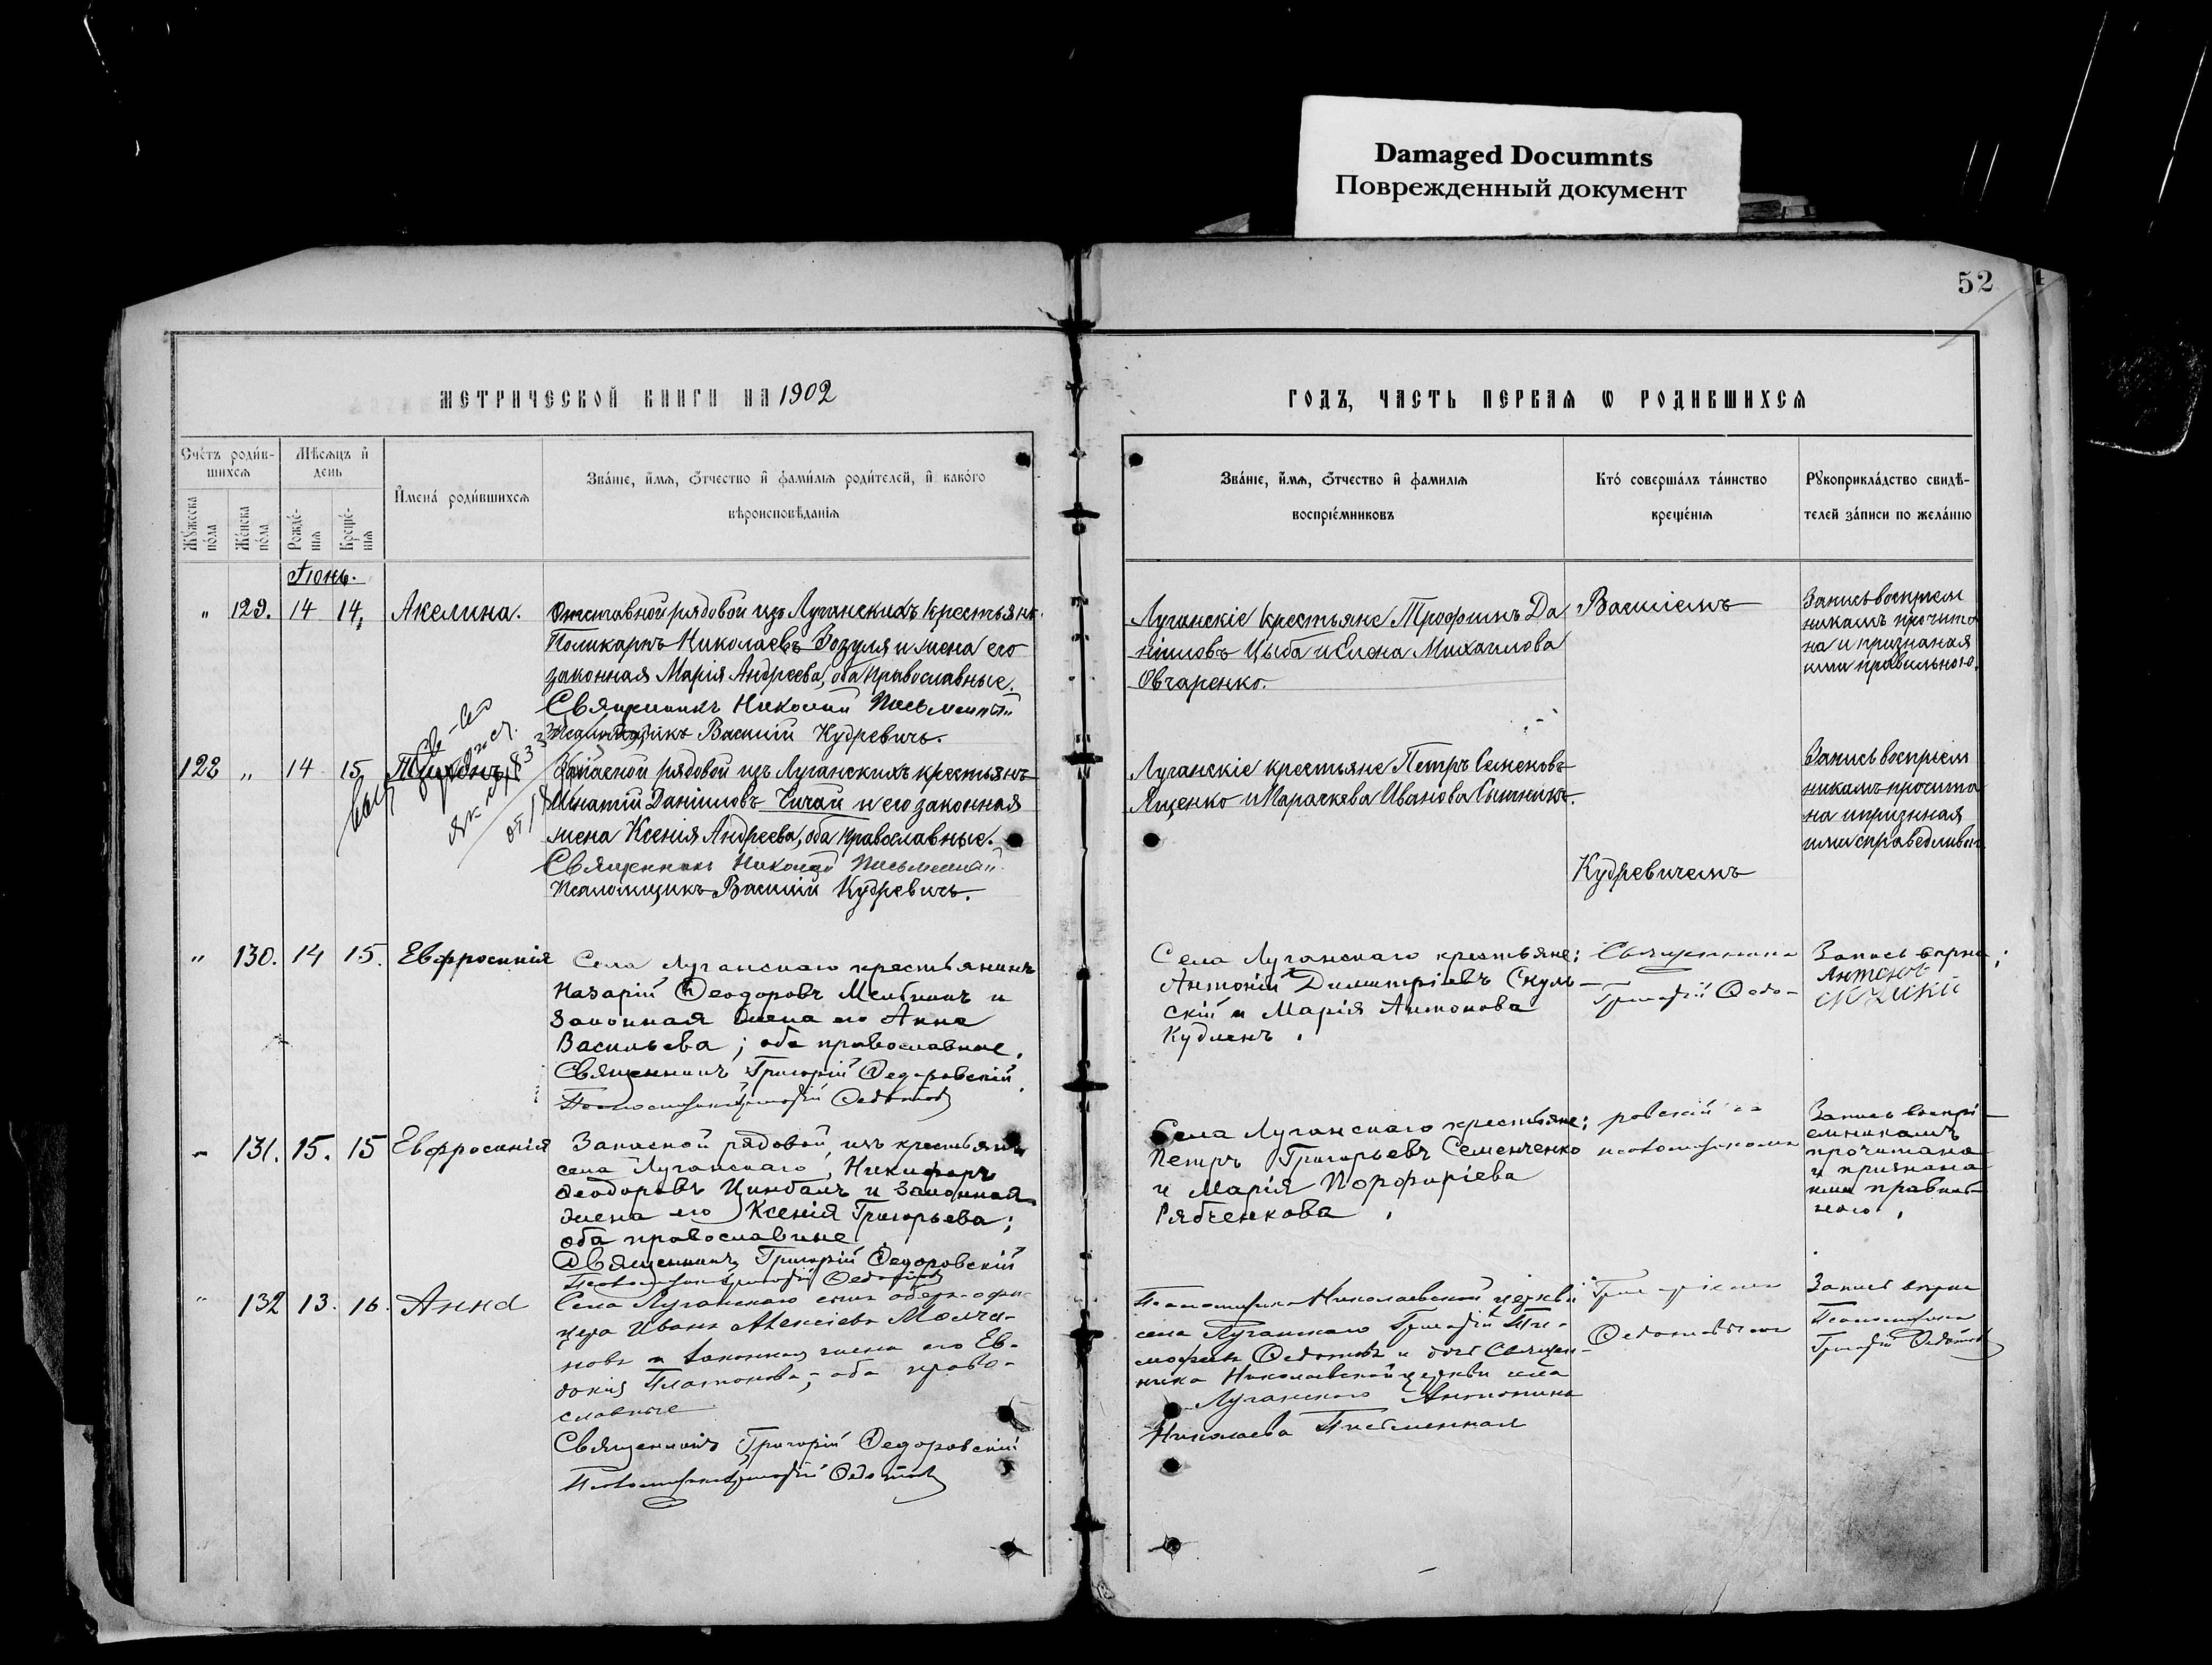 Damaged Documnts
Поврежденный документ
52
МЕТРИЧЕСКОЙ КНИГИ НА 1902
ГОДЪ, ЧАСТЬ ПЕРВАЯ Ѡ РОДИВШИХСЯ
Счетъ родив-
шихся
Мѣсяцъ и
день
Мужеска
пола
Женска
пола
Рожде-
нія
Креще-
нія
Имена родившихся
Званіе, имя, отчество и фамилія родителей, и какого
вѣроисповѣданія
Званіе, имя, отчество и фамилія
воспріемниковъ
Кто совершалъ таинство
крещенія
Рукоприкладство свидѣ-
телей записи по желанію
Іюнь.
" 129. 14 14, Акелина.
Отставной рядовой изъ Луганскихъ крестьянъ
Поликарпъ Николаевъ Зозуля и жена его
законная Марія Андреева, оба православные.
Священникъ Николай Письменный
Псаломщикъ Василій Кудревичъ.
Луганскіе крестьяне Трофимъ Да
ніиловъ Цыба и Елена Михаилова
Овчаренко.
Василіемъ
Запись воспріем
никамъ прочита
на и признаная
ими правильною.
122 " 14 15
Запасной рядовой изъ Луганскихъ крестьянъ
Игнатій Даніиловъ Чичай и его законная
жена Ксенія Андреева, оба православные.
Священникъ Николай Письменный
Псаломщикъ Василій Кудревичъ.
Луганскіе крестьяне Петръ Семеновъ
Яценко и Иванова
Кудревичемъ
Запись воспріем
никамъ прочита
на и признная
ими справедливою
" 130. 14 15. Евфросинія
Села Луганскаго крестьянинъ
Назарій Ѳеодоровъ Мельникъ и
Законная жена его Анна
Васильева; оба православные.
Священникъ Григорій Ѳедоровскій
Псаломщикъ Григорій Ѳедотовъ
Села Луганскаго крестьяне;
Антоній Димитріевъ Скуль-
скій и Марія Антонова
Священникомъ
Григорій Ѳедо-
Запись вѣрна;
Антонъ
131. 15. 15 Евфросинія
Запасной рядовой, изъ крестьянъ
села Луганскаго, Никифоръ
Ѳеодоровъ Цимбалъ и Законная
жена его Ксенія Григорьева;
оба православные
Священникъ Григорій Ѳедоровскій
Псаломщикъ Григорій Ѳедотовъ
Села Луганскаго крестьяне;
Петръ Григорьевъ Семенченко
и Марія Порфиріева
Рябченкова
ровскій съ
псаломщикомъ
Запись воспрі-
емникамъ
прочитана
и признана
ими правиль-
ною.
" 132 13. 16. Анна
Села Луганскаго сынъ оберъ-офи-
цера Иванъ Алексіевъ Молча-
новъ и законная жена его Ев-
докія Платонова; оба право-
славные
Священникъ Григорій Ѳедоровскій
Псаломщикъ Григорій Ѳедотовъ
Псаломщикъ Николаевской церкви
села Луганскаго Григорій Ти-
моѳеевъ Ѳедотовъ и дочь Священ-
ника Николаевской церкви села
Луганскаго Антонина
Николаева Письменная
Григоріемъ
Ѳедотовымъ
Запись вѣрна
Псаломщикъ
Григорій Ѳедотовъ